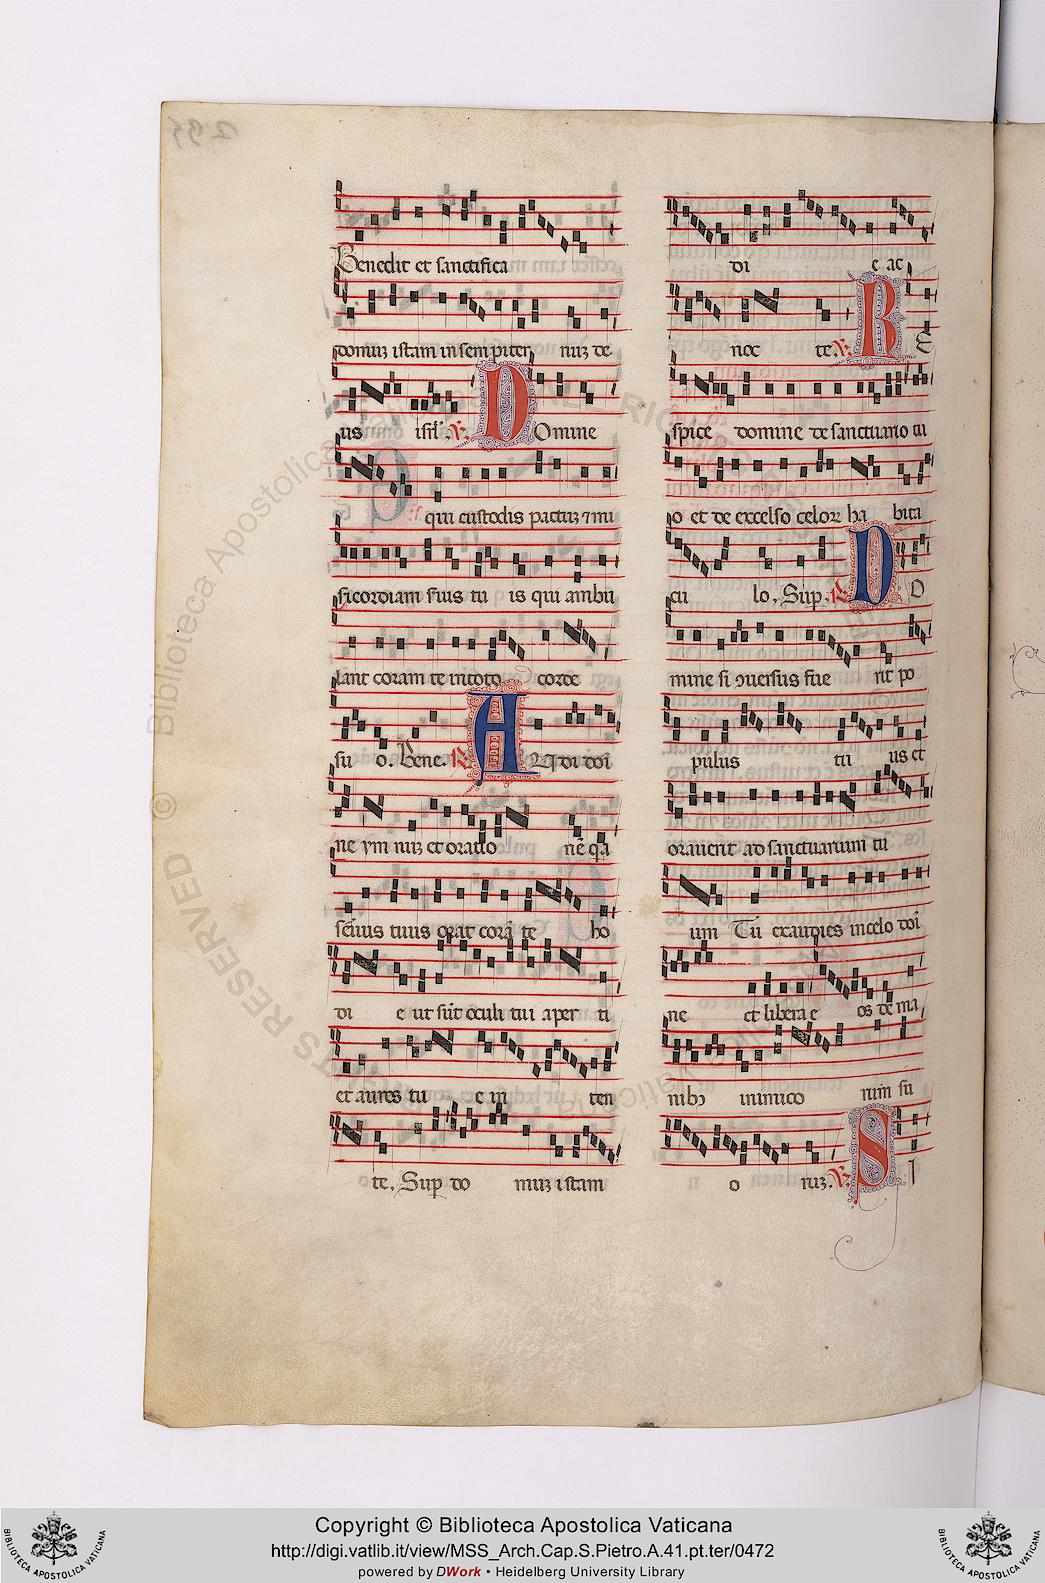 295
Benedic et sanctifica
domuz istam in sempiter nuz de
us isrl'. V. Domine
qui custodis pactuz 7 mi
sicordiam suis tu is qui ambu
lant coram te intoto corde
su o. Bene. R. Audi domi
ne ym nuz et oratio nē qā
servus tuus orat corā te ho
di e ut sūt oculi tui aper ti
et aures tu e in ten
te. Sup do muz istam
di e ac
noc te. V. Re
spice domine de sanctuario tu
o et de excelso celoꝝ ha bita
cu lo. Sup. R. Do
mine si ɔversus fue rit po
pulus tu us et
oraverit ad sanctuarium tu
um Tu exaudies in celo domi
ne et libera e os de ma
nibɔ inimico rum su
o ruz. V. Si
© Biblioteca Apostolica Vaticana ALL RIGHTS RESERVED
Copyright © Biblioteca Apostolica Vaticana
http://digi.vatlib.it/view/MSS_Arch.Cap.S.Pietro.A.41.pt.ter/0472
powered by DWork • Heidelberg University Library
BIBLIOTECA APOSTOLICA VATICANA
BIBLIOTECA APOSTOLICA VATICANA